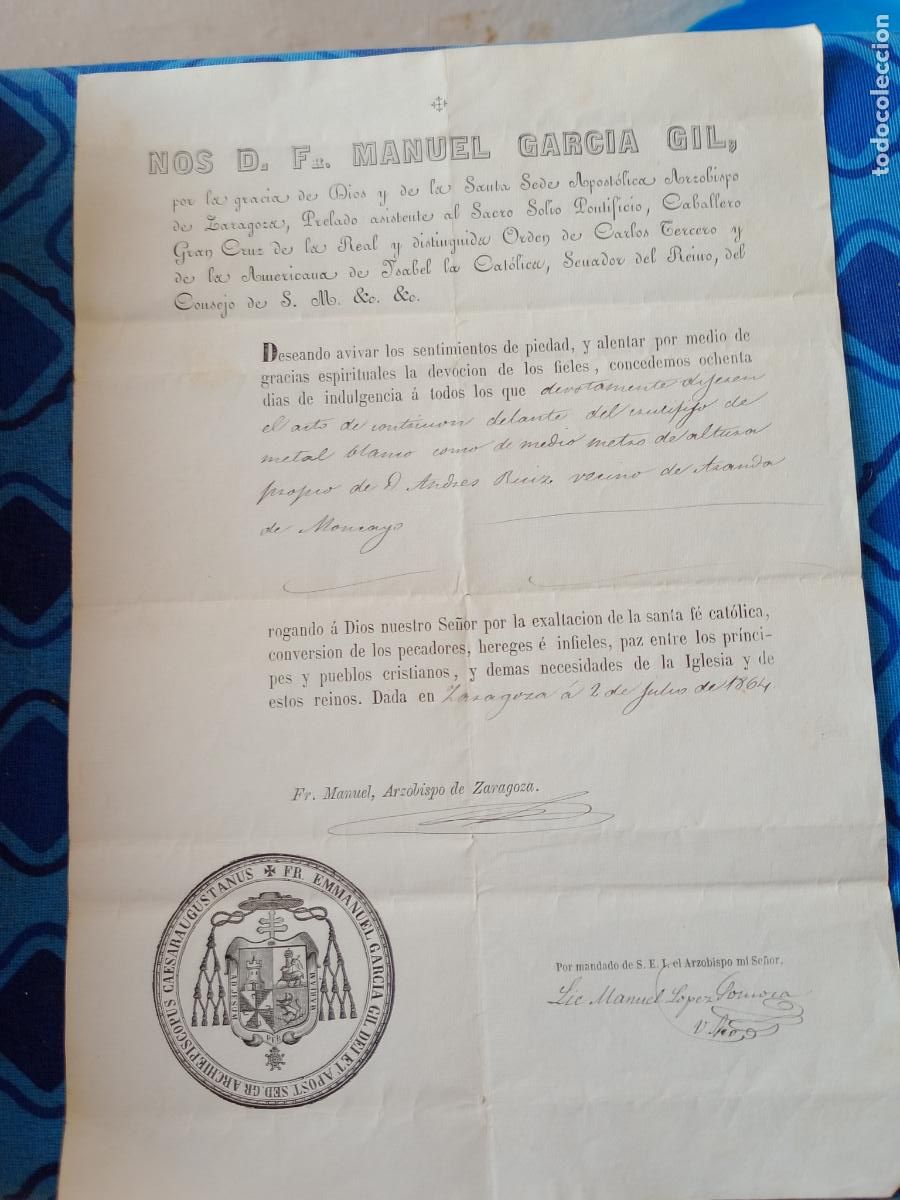 NOS D. Fr. MANUEL GARCIA GIL,
por la gracia de Dios y de la Santa Sede Apostólica Arzobispo
de Zaragoza, Prelado asistente al Sacro Solio Pontificio, Caballero
Gran Cruz de la Real y distinguida Orden de Carlos Tercero y
de la Americana de Isabel la Católica, Senador del Reino, del
Consejo de S. M. &c. &c.
Deseando avivar los sentimientos de piedad, y alentar por medio de
gracias espirituales la devocion de los fieles, concedemos ochenta
dias de indulgencia á todos los que devotamente dijesen
el acto de contricion delante del crucifijo de
metal blanco como de medio metro de altura
propio de D Andres Ruiz vecino de Aranda
de Moncayo
rogando á Dios nuestro Señor por la exaltacion de la santa fé católica,
conversion de los pecadores, hereges é infieles, paz entre los prínci-
pes y pueblos cristianos, y demas necesidades de la Iglesia y de
estos reinos. Dada en Zaragoza á 2 de Julio de 1864.
Fr. Manuel, Arzobispo de Zaragoza.
✠ FR. EMMANUEL GARCIA GIL DEI ET APOST SED. GR ARCHIEPISCOPUS CAESARAUGUSTANUS
Por mandado de S. E. I. el Arzobispo mi Señor,
Lic Manuel Lopez
todocoleccion